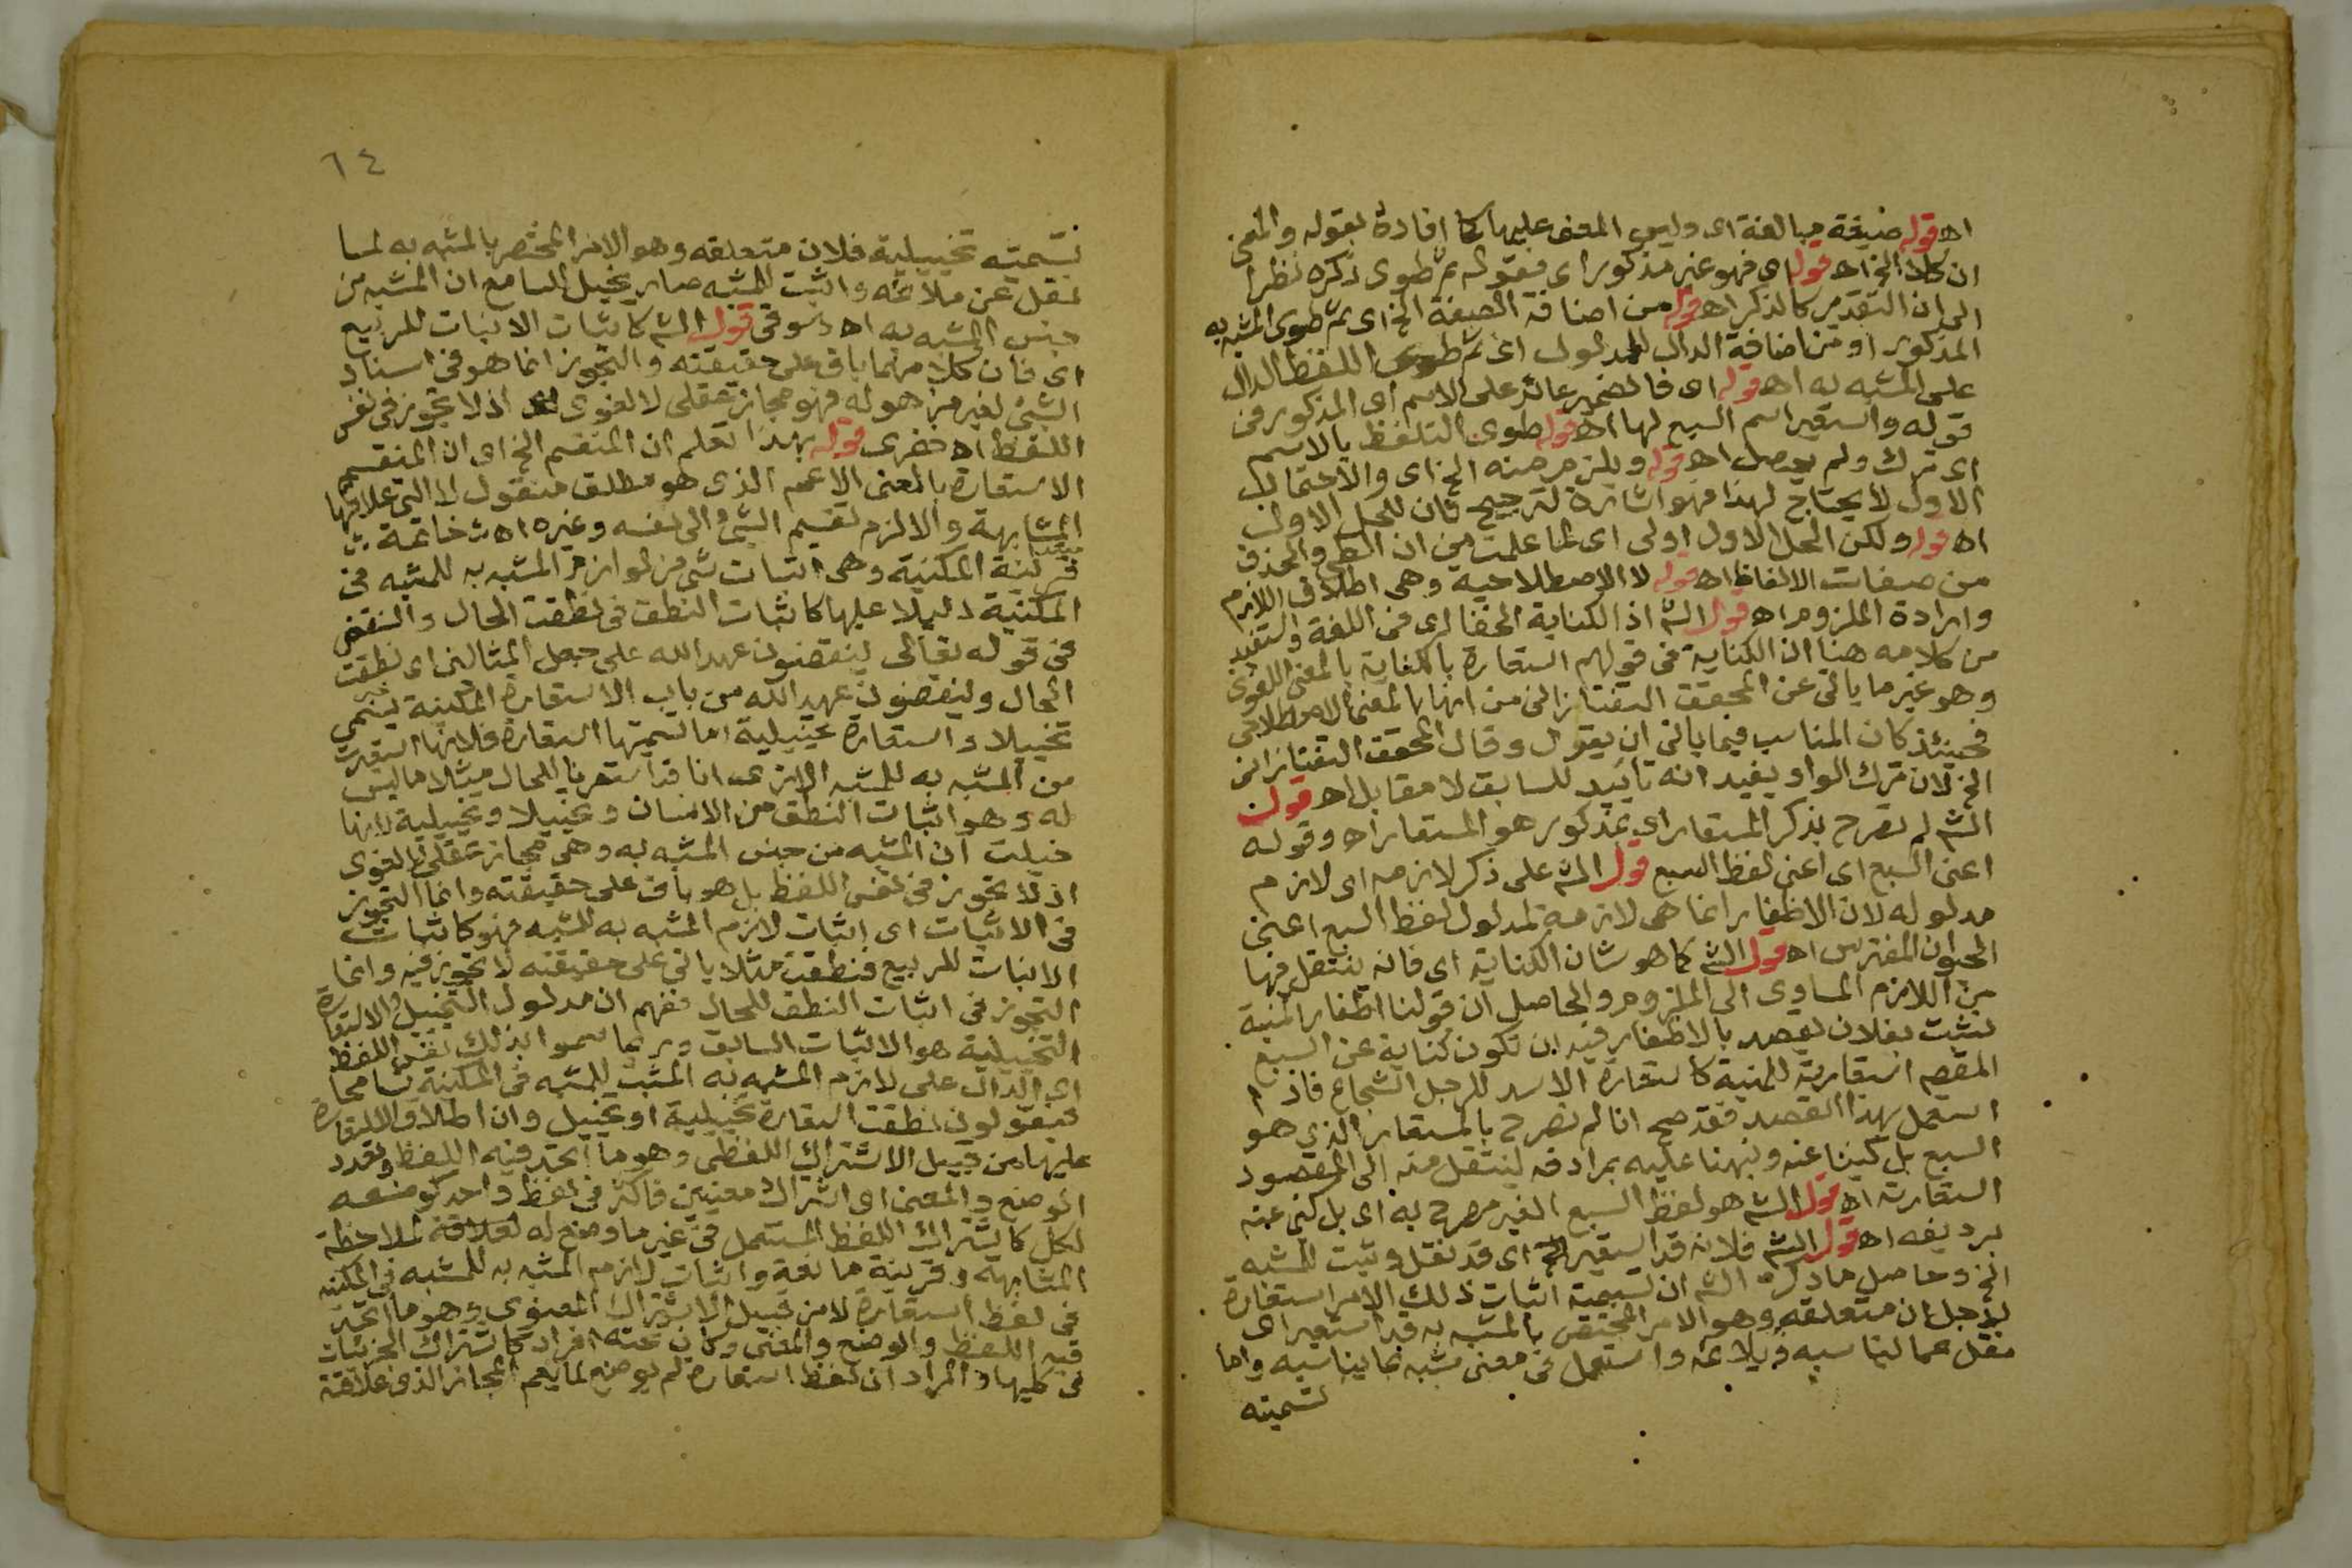 اه قوله صيغة مبالغة اى وليس المعنى عليها كما افاده بقوله والمعنى
ان كلا الخ اه قوله اى فهو غير مذكور اى فقوله ثم طوى ذكره نظرا
الى ان التقدير كالذكر اه قوله من اضافة الصفة الخ اى ثم طوى المشبه به
المذكور او من اضافة الدال للمدلول اى ثم طوى اللفظ الدال
على المشبه به اه قوله اى فالضمير عائد على الاسم اى المذكور فى
قوله واستعير اسم السبع لها اه قوله طوى التلفظ بالاسم
اى ترك ولم يحصل اه قوله ويلزم منه الخ اى والاحتمال
الاول لا يحتاج لهذا فهو اشارة لترجيح فان للحمل الاول
اه قوله ولكن الحمل الاول اولى اى لما علمت من ان الطى والحذف
من صفات الالفاظ اه قوله لا الاصطلاحية وهى اطلاق اللازم
وارادة الملزوم اه قول الشم اذ الكناية الخفا اى فى اللغة واستفيد
من كلامه هنا ان الكناية فى قولهم استعارة بالكناية بالمعنى اللغوى
وهو غير ما ياتى عن المحقق التفتازانى من انها بالمعنى الاصطلاحى
فحينئذ كان المناسب فيما ياتى ان يقول وقال المحقق التفتازانى
الخ لان ترك الواو يفيد انه تاييد للسابق لا مقابل اه قول
الشم لم نصرح بذكر المستعار اى بمذكور هو المستعار اه وقوله
اعنى السبع اى اعنى لفظ السبع قول الشم على ذكر لازمه اى لازم
مدلوله لان الاظفار انما هى لازمة لمدلول لفظ السبع اعنى
الحيوان المفترس اه قول الشم كما هو شان الكناية اى فانه ينتقل فيها
من اللازم المساوى الى الملزوم والحاصل ان قولنا اظفار المنية
نشبت بفلان نقصد بالاظفار فيه ان تكون كناية عن السبع
المقصم استعارته للمنية كاستعارة الاسد للرجل الشجاع فاذا
استعمل بهذا القصد فقد صح انا لم نصرح بالمستعار الذى هو
السبع بل كنينا عنه ونبهنا عليه بمرادفه لينتقل منه الى المقصود
استعارته اه قول الشم هو لفظ السبع الغير مصرح به اى بل كنى عنه
برديفه اه قول الشم فلانه قد استعير الخ اى قد نقل وثبت للمشبه
الخ وحاصل ما ذكره الشم ان تسمية اثبات ذلك الامر استعارة
لاجل ان متعلقه وهو الامر المختص بالمشبه به قد استعير اى
نقل عما يناسبه ويلائمه واستعمل فى معنى مشبه بما يناسبه واما
تسميته
٦٤
تسميته تخييلية فلان متعلقه وهو الامر المختص بالمشبه به لما
نقل عن ملائمه واثبت للمشبه صار يخيل للسامع ان المشبه من
جنس المشبه به اه دسوقى قول الشم كاثبات الانبات للربيع
اى فان كلا منهما باق على حقيقته والتجوز انما هو فى اسناد
الشئ لغير من هو له فهو مجاز عقلى لا لغوى اذ لا تجوز فى نفس
اللفظ اه خضرى قوله بهذا تعلم ان المنقسم الخ اى ان المنقسم
الاستعارة بالمعنى الاعم الذى هو مطلق منقول لا التى علاقتها
المشابهة والا لزم تقسيم الشئ الى نفسه وغيره اه خاتمة
قرينة المكنية وهى اثبات شئ من لوازم المشبه به للمشبه فى
المكنية دليلا عليها كاثبات النطق فى نطقت الحال والنقض
فى قوله تعالى ينقضون عهد الله على جعل المثالين اى نطقت
الحال وينقضون عهد الله من باب الاستعارة المكنية تسمى
تخييلا واستعارة تخييلية اما تسميتها استعارة فلانها استعيرت
من المشبه به للمشبه الا ترى انا قد استعرنا للحال مثلا ما ليس
له وهو اثبات النطق من الانسان وتخييلا وتخييلية لانها
خيلت ان المشبه من جنس المشبه به وهى مجاز عقلى لا لغوى
اذ لا تجوز فى نفس اللفظ بل هو باق على حقيقته وانما التجوز
فى الاثبات اى اثبات لازم المشبه به للمشبه فهو كاثبات
الانبات للربيع فنطقت مثلا باق على حقيقته لا تجوز فيه وانما
التجوز فى اثبات النطق للحال ففهم ان مدلول التخييل والاستعارة
التخييلية هو الاثبات السابق وربما سموا بذلك نفس اللفظ
اى الدال على لازم المشبه به المثبت للمشبه فى المكنية تسامحا
فيقولون نطقت استعارة تخييلية او تخييل وان اطلاق الاستعارة
عليها من قبيل الاشتراك اللفظى وهو ما اتحد فيه اللفظ وتعدد
الوضع والمعنى اى اشتراك معنيين فاكثر فى لفظ واحد كوضعه
لكل كاشتراك اللفظ المستعمل فى غير ما وضع له لعلاقة لملاحظة
المشابهة وقرينة مانعة واثبات لازم المشبه به للمشبه فى المكنية
فى لفظ استعارة لا من قبيل الاشتراك المعنوى وهو ما اتحد
فيه اللفظ والوضع والمعنى وكان تحته افراد كاشتراك الجزئيات
فى كليها والمراد ان لفظ استعارة لم يوضع لما يعم المجاز الذى علاقته